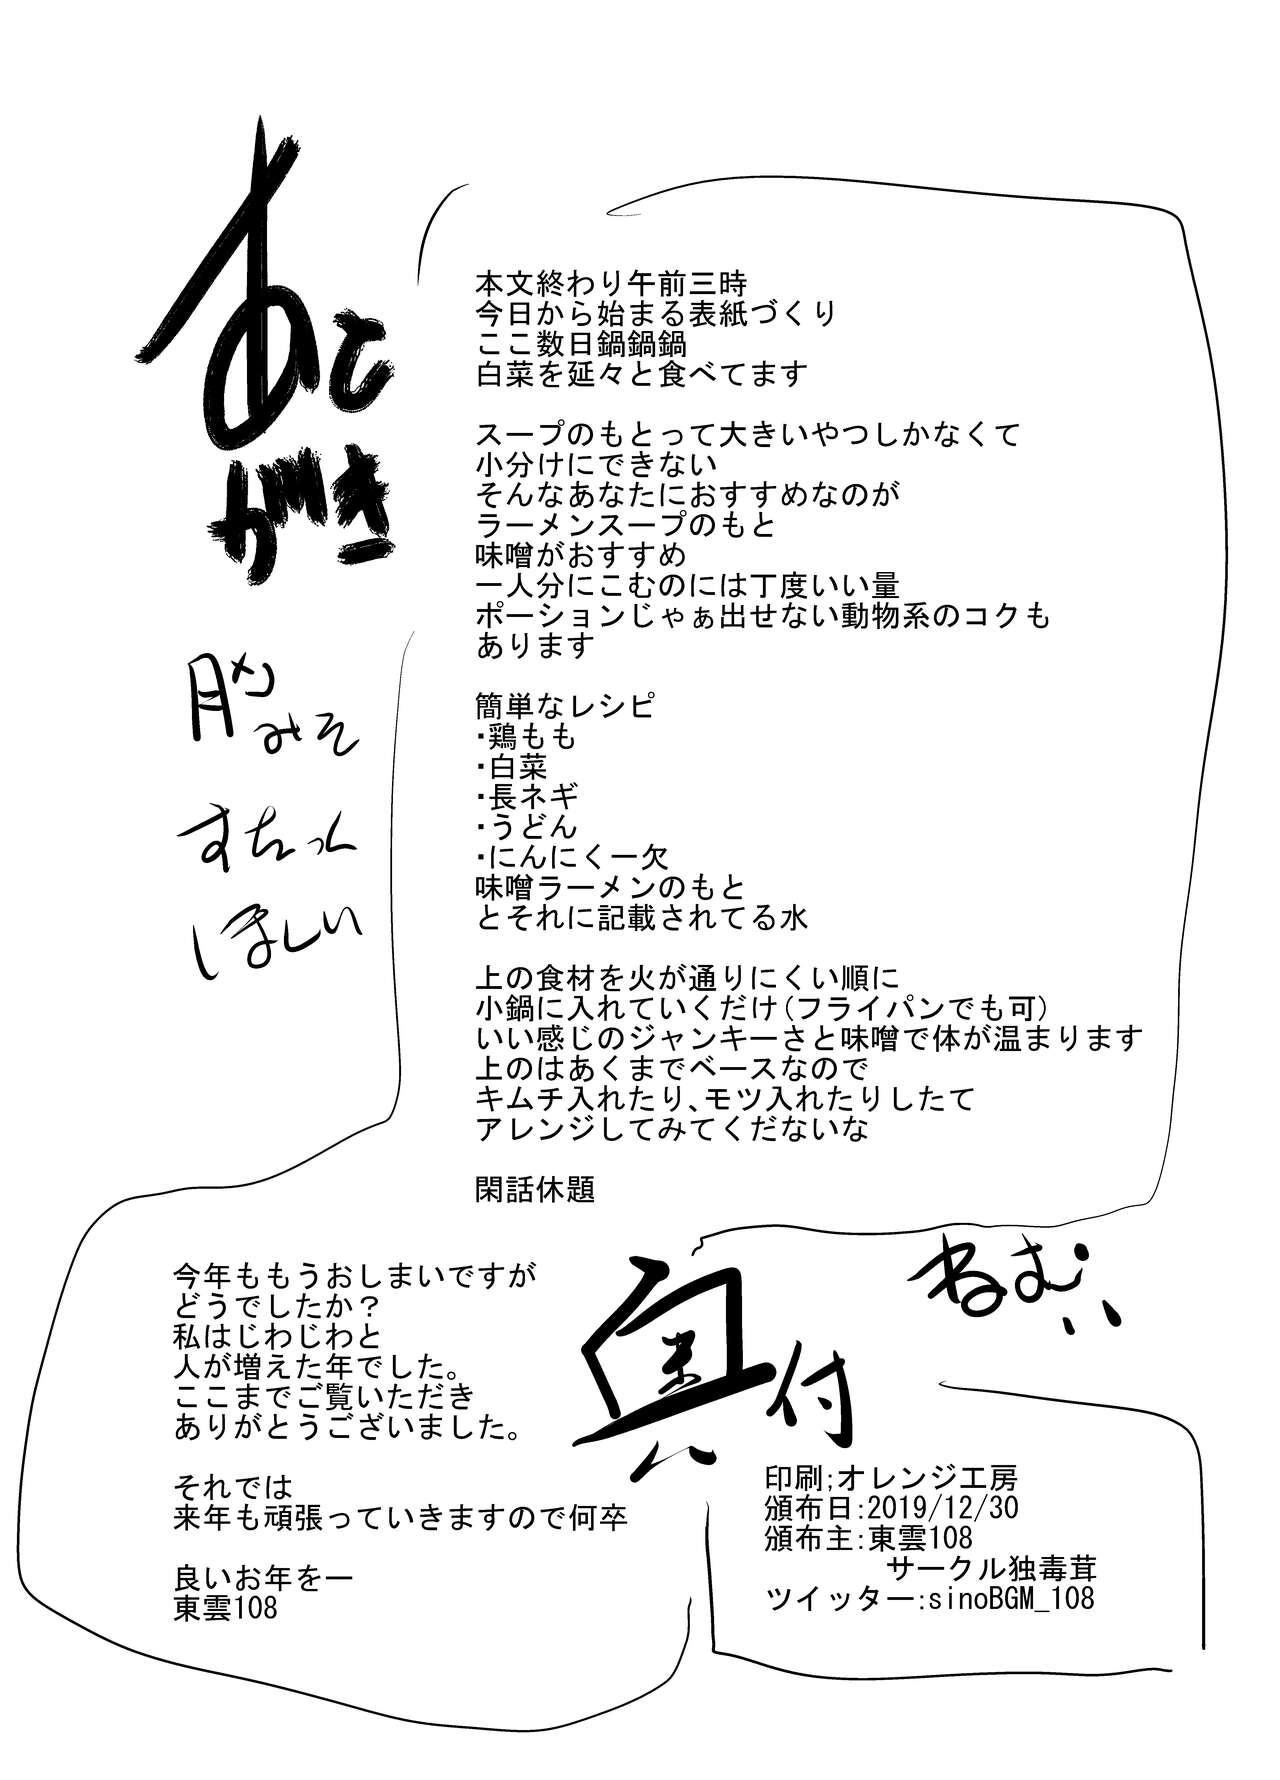 あと
がき
本文終わり午前三時
今日から始まる表紙づくり
ここ数日鍋鍋鍋
白菜を延々と食べてます
スープのもとって大きいやつしかなくて
小分けにできない
そんなあなたにおすすめなのが
ラーメンスープのもと
味噌がおすすめ
一人分にこむのには丁度いい量
ポーションじゃぁ出せない動物系のコクも
あります
簡単なレシピ
・鶏もも
・白菜
・長ネギ
・うどん
・にんにく一欠
味噌ラーメンのもと
とそれに記載されてる水
上の食材を火が通りにくい順に
小鍋に入れていくだけ(フライパンでも可)
いい感じのジャンキーさと味噌で体が温まります
上のはあくまでベースなので
キムチ入れたり、モツ入れたりしたて
アレンジしてみてくだないな
閑話休題
みそ
すちっく
ほしい
今年ももうおしまいですが
どうでしたか？
私はじわじわと
人が増えた年でした。
ここまでご覧いただき
ありがとうございました。
それでは
来年も頑張っていきますので何卒
良いお年をー
東雲108
ねむい
奥付
印刷;オレンジ工房
頒布日:2019/12/30
頒布主:東雲108
サークル独毒茸
ツイッター:sinoBGM_108